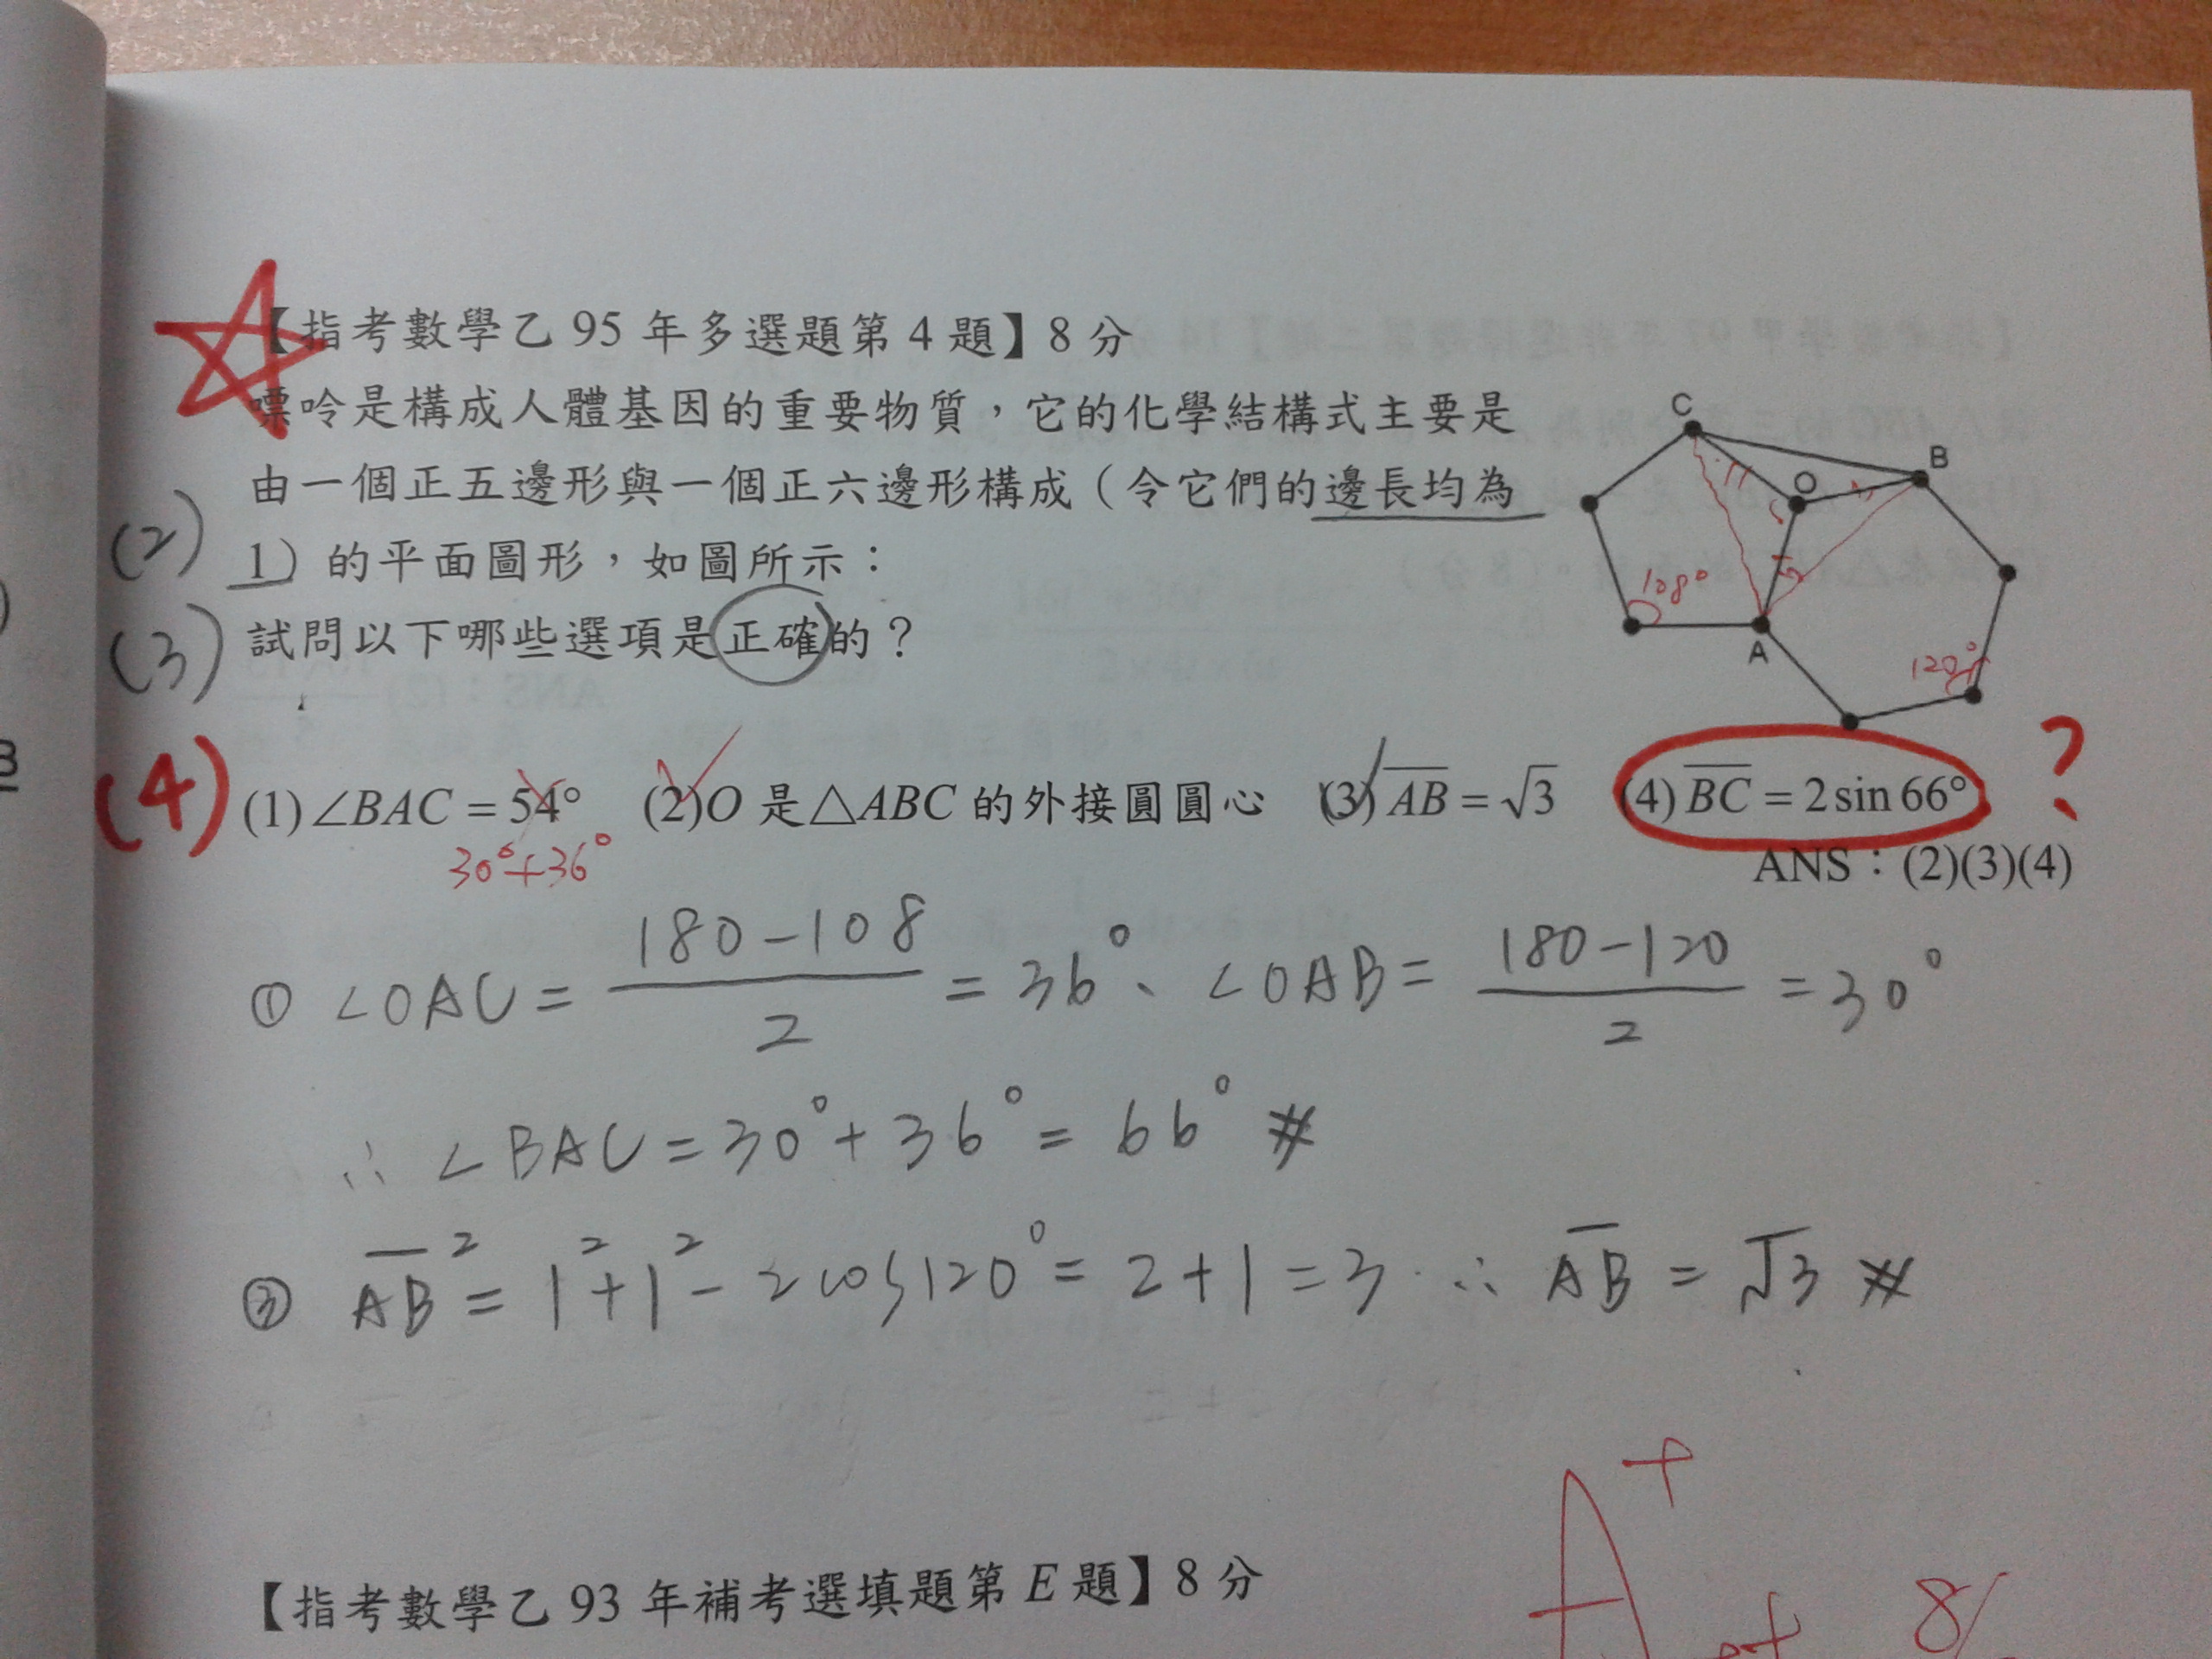 【指考數學乙 95 年多選題第 4 題】8 分
嘌呤是構成人體基因的重要物質，它的化學結構式主要是
由一個正五邊形與一個正六邊形構成（令它們的邊長均為
(2) 1）的平面圖形，如圖所示：
(3) 試問以下哪些選項是正確的？
C
B
O
108°
A
120°
(4) (1)∠BAC = 54° (2)O 是△ABC 的外接圓圓心 (3) \overline{AB} = √3 (4) \overline{BC} = 2 sin 66° ?
30°+36°
ANS：(2)(3)(4)
① ∠OAC = \frac{180-108}{2} = 36°、∠OAB = \frac{180-120}{2} = 30°
∴ ∠BAC = 30° + 36° = 66° #
③ \overline{AB}² = 1² + 1² - 2cos120° = 2+1 = 3 ∴ \overline{AB} = √3 #
【指考數學乙 93 年補考選填題第 E 題】8 分
A+
8/